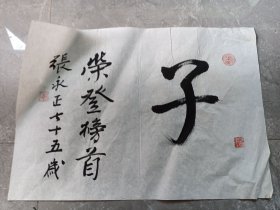 子
荣登榜首
張永正七十五歲